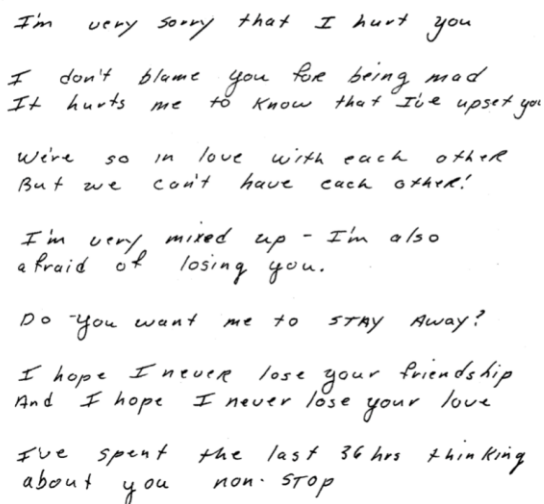 I'm very sorry that I hurt you
I don't blame you for being mad
It hurts me to know that I've upset you
We're so in love with each other
But we can't have each other!
I'm very mixed up - I'm also
afraid of losing you.
Do you want me to STAY AWAY?
I hope I never lose your friendship
And I hope I never lose your love
I've spent the last 36 hrs thinking
about you non-STOP